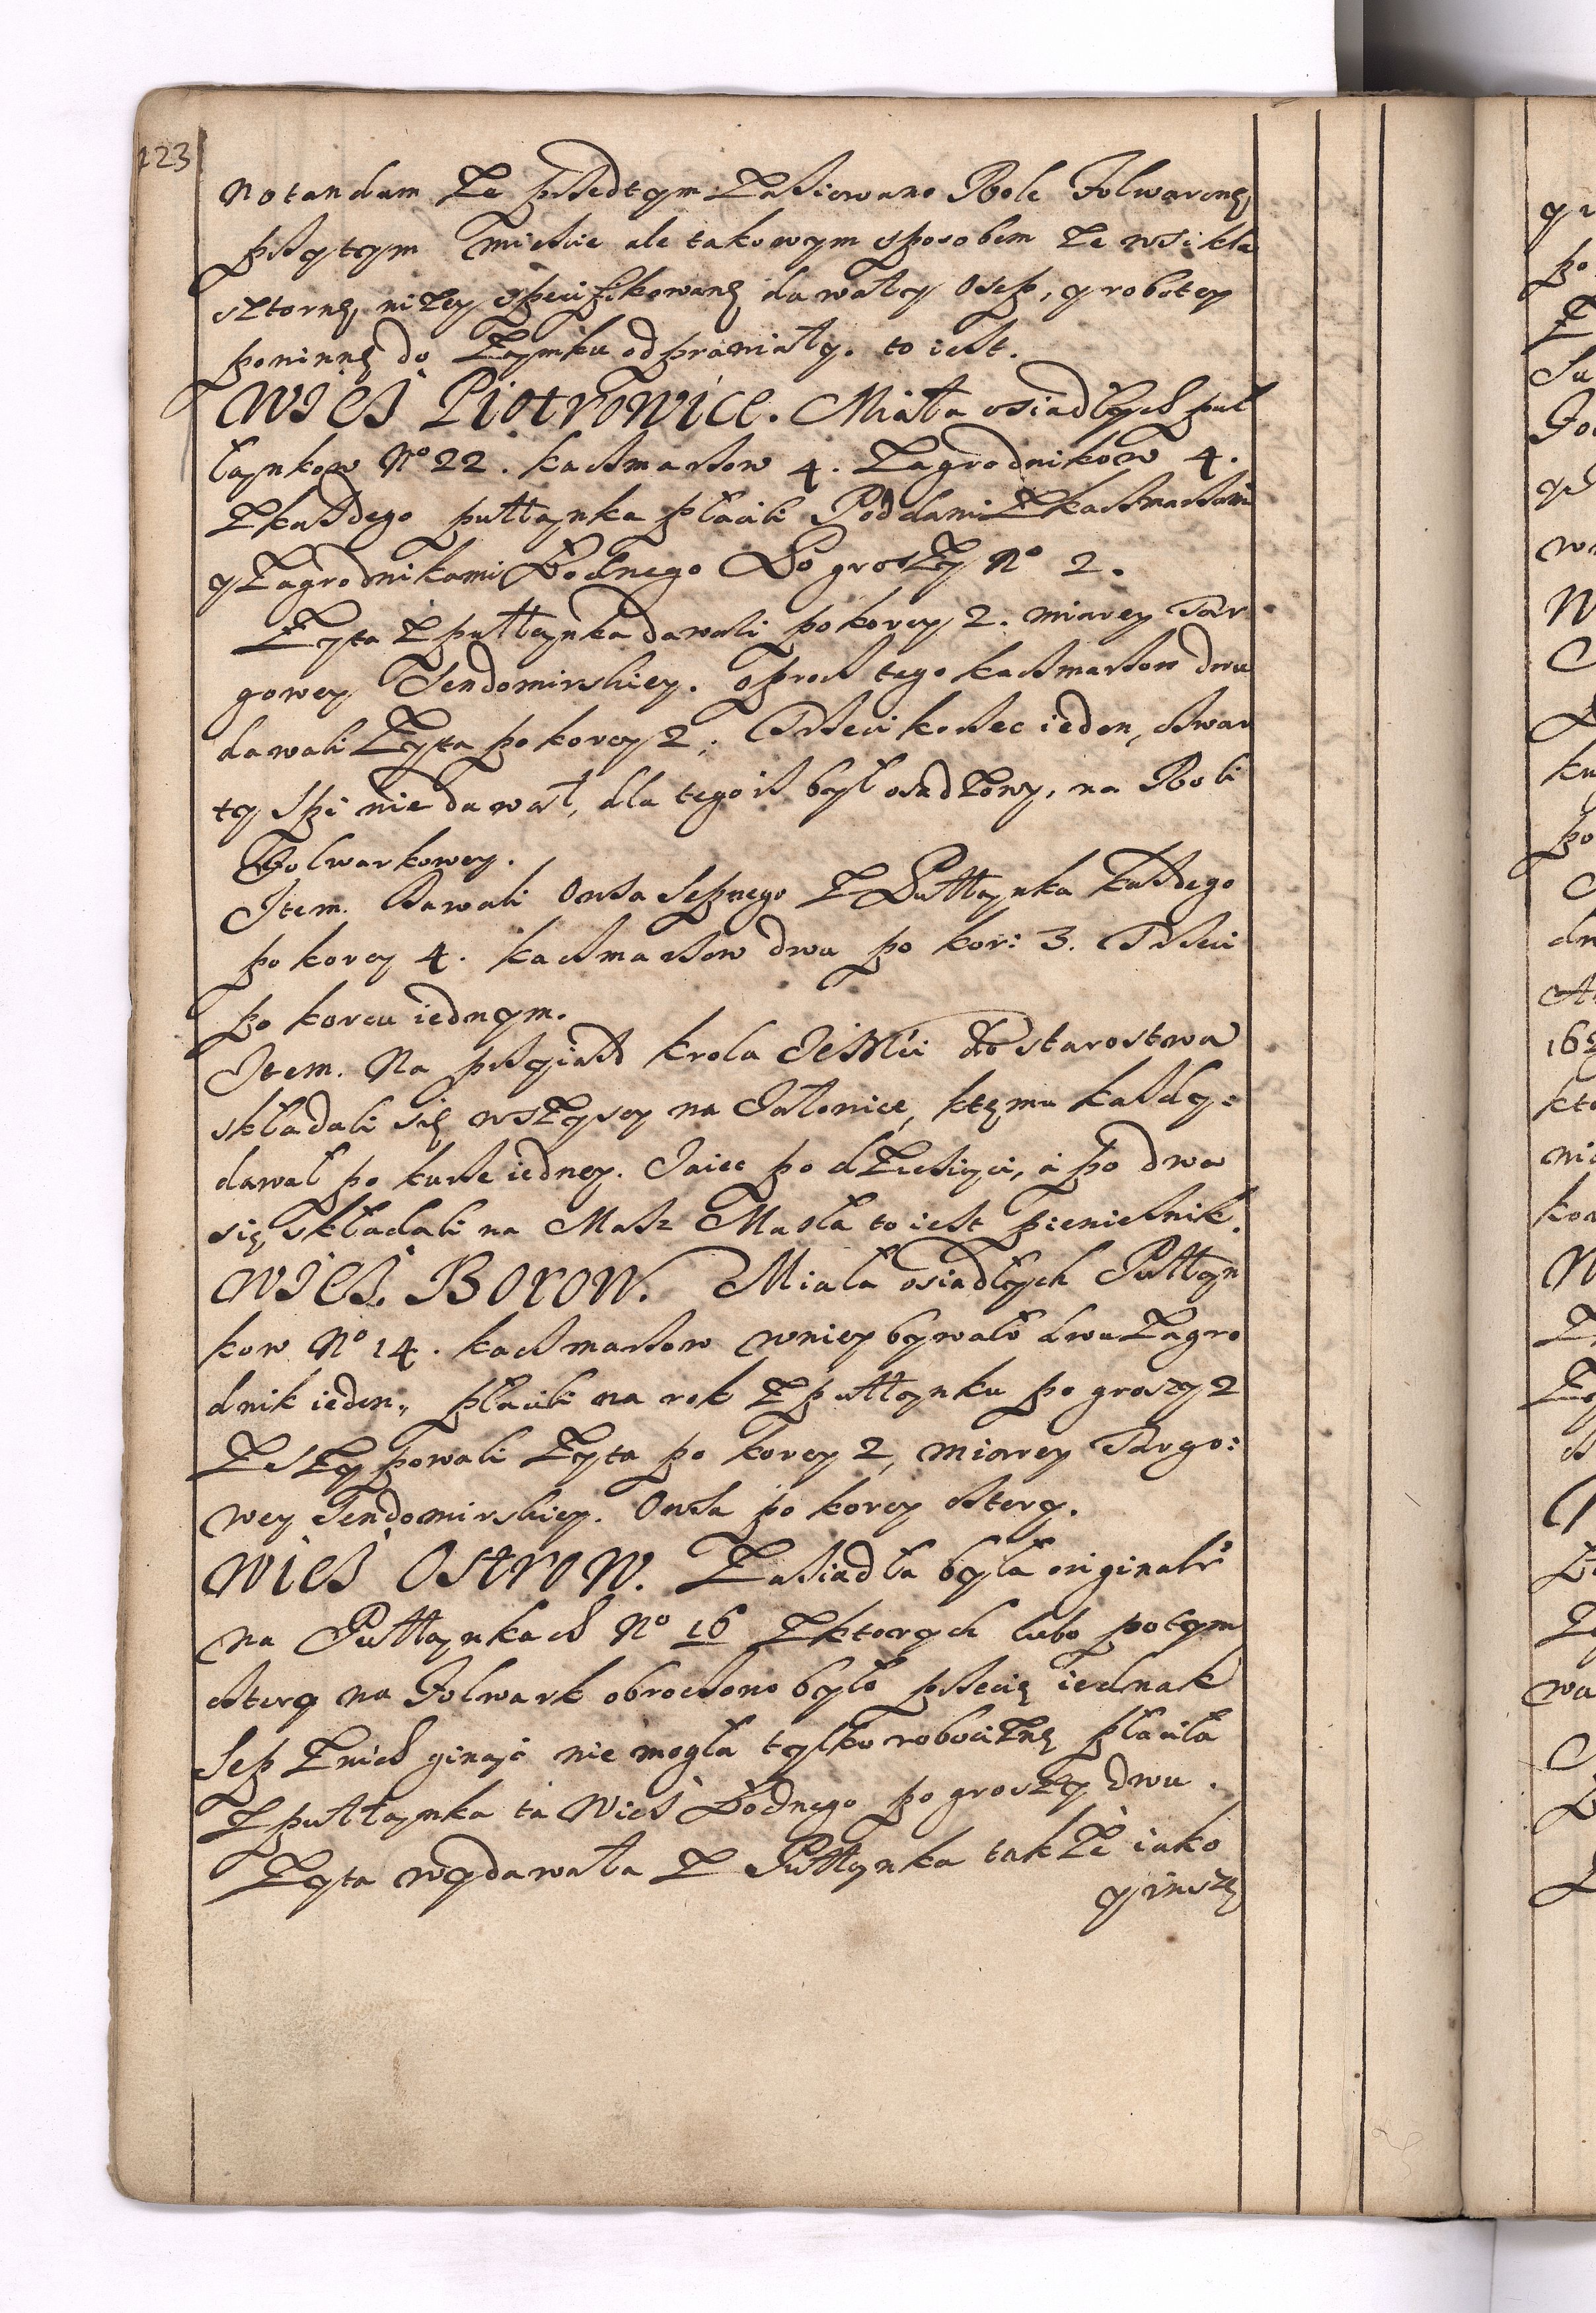 123
Notandum Ze przedtym Zasiewano Role Folwarczne
przytym mieście ale takowym sposobem Ze wsi kla
sztorne, niZey specifikowane dawały Osep, y roboty
powinne do Zamku odprawiały. to iest.
WIEŚ Piotrowice. Miała osiadłych puł
łaynkow No 22. kaczmarzow 4. Zagrodnikow 4.
Zkażdego pułłaynka płacili Poddani Zkaczmarzami
y Zagrodnikami Rocznego Po groszy No 2.
Zyta Z pułłaynka dawali po korcy 2. miarey Tar
gowey Sendomirskiey. oprocz tego kaczmarzow dwu
dawali Zyta po korcy 2; Trzeci korzec ieden, czwar
ty Spi nie dawał, dla tego iż był osadZony, na Roli
Folwarkowey.
Item. Dawali Owsa Sepnego Z Pułłaynka każdego
po korcy 4. kaczmarzow dwu po kor: 3. Trzeci
po korcu iednym.
Item. Na przyiazd krola JeMści do starostwa
składali się wszyscy na Jałowice, ktemu każdy
dawał po kurze iedney. Jaiec po dZiesięci, á po dwa
się składali na Masz Masła to iest pieniesnik.
WIEŚ BOROW. Miała osiadłych Pułłayn
kow No 14. kaczmarzow wniey bywało dwu Zagro
dnik ieden, płacili na rok Z pułłaynku po groszy 2
Z Szypowali Zyta po korcy 2, miarey Targo:
wey Sendomirskiey. Owsa po korcy cztery.
WIEŚ OSTROW. Zasiadła była originalr
na Pułłaynkach No 16 Zktorych lubo potym
cztery na Folwark obroczono było przecię iednak
Sep Znich ginąć nie mogła tylko robociZnę płaciła
Z pułłaynka ta Wieś Rocznego po groszy dwu.
Zyta wydawała Z Pułłaynka takZe iako
y insze